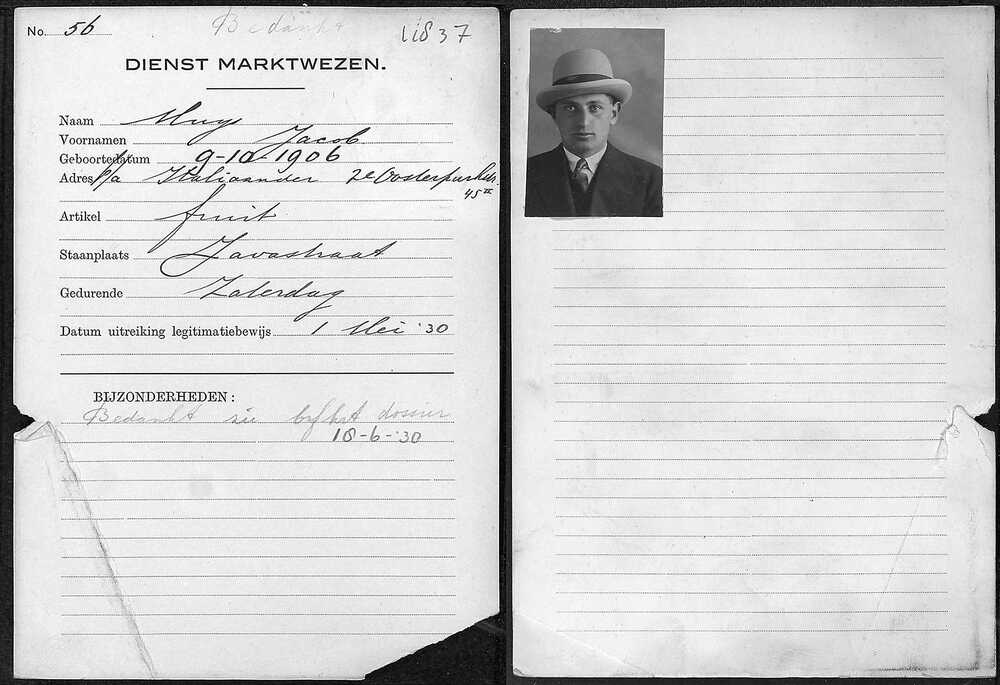 No. 56 Bedankt
DIENST MARKTWEZEN.
Naam Muy
Voornamen Jacob
Geboortedatum 9-10-1906
Adres p/a Italiaander 2e Oosterparkstr.
45 II
Artikel fruit
Staanplaats Javastraat
Gedurende Zaterdag
Datum uitreiking legitimatiebewijs 1 Mei '30
BIJZONDERHEDEN:
Bedankt zie dossier
18-6-30